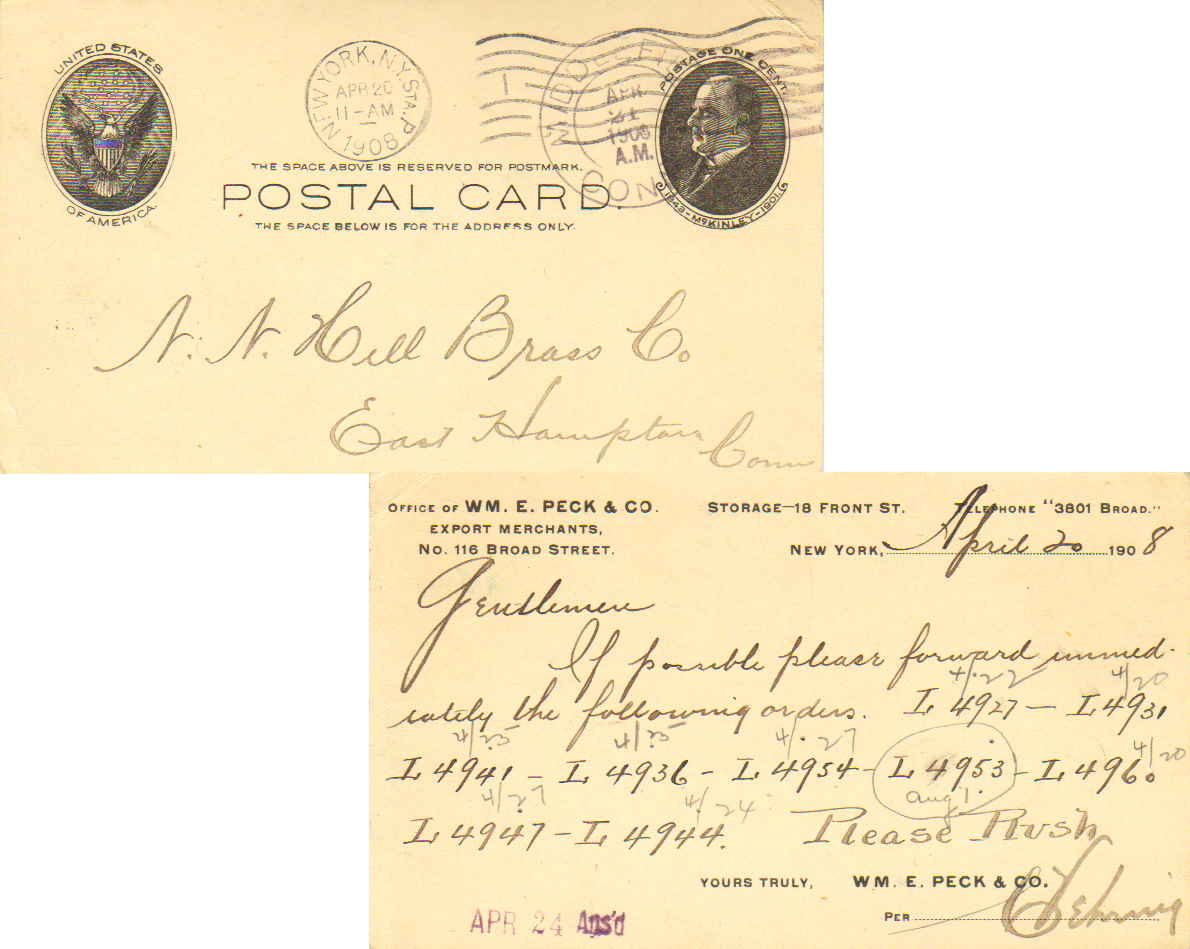 UNITED STATES
OF AMERICA.
NEW YORK, N.Y. STA. P
APR 20
11-AM
1908
APR
21
1908
A.M.
CON
POSTAGE ONE CENT
1843-McKINLEY-1901
THE SPACE ABOVE IS RESERVED FOR POSTMARK.
POSTAL CARD.
THE SPACE BELOW IS FOR THE ADDRESS ONLY.
N. N. Hill Brass Co
East Hampton
Conn
OFFICE OF WM. E. PECK & CO. STORAGE—18 FRONT ST. TELEPHONE "3801 BROAD."
EXPORT MERCHANTS,
No. 116 BROAD STREET. NEW YORK, April 20 1908
Gentlemen
If possible please forward immed-
4/22 4/20
iately the following orders. L 4927 — L 4931
4/25 4/25 4/27 4/20
L 4941 - L 4936 - L 4954 - L 4953 - L 4960
4/27 4/24 aug 1.
L 4947 - L 4944. Please Rush
YOURS TRULY, WM. E. PECK & CO.
PER
APR 24 Ans'd